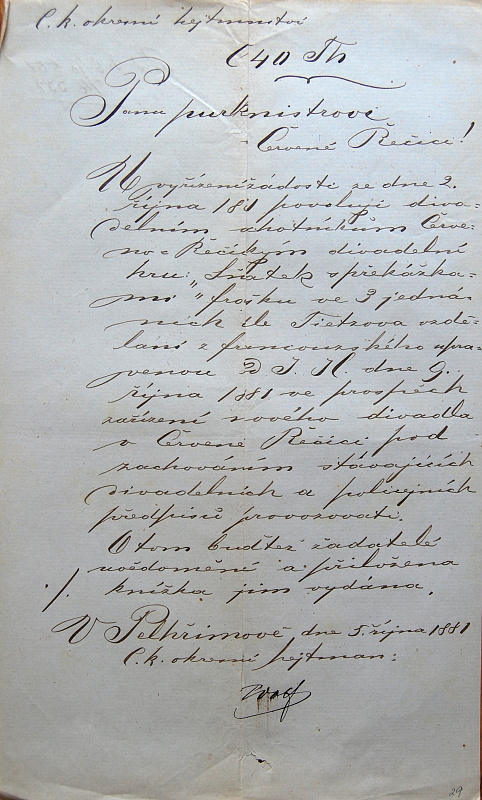 C. k. okresní hejtmanství
640 Th
Panu purkmistrovi
Červené Řečici!
U vyřízení žádosti ze dne 2.
října 1881 povoluji diva-
delním ochotníkům Červe-
no-Řečickým divadelní
hru: „Sňatek s překážka-
mi" frašku ve 3 jedná-
ních dle Tietzova vzdě-
lání z francouzského upra-
venou J. H. dne 9.
října 1881 ve prospěch
zařízení nového divadla
v Červené Řečici pod
zachováním stávajících
divadelních a policejních
předpisů provozovati.
O tom buďtež žadatelé
uvědoměni a přiložena
./. knížka jim vydána.
V Pelhřimově dne 5. října 1881
C. k. okresní hejtman:
29